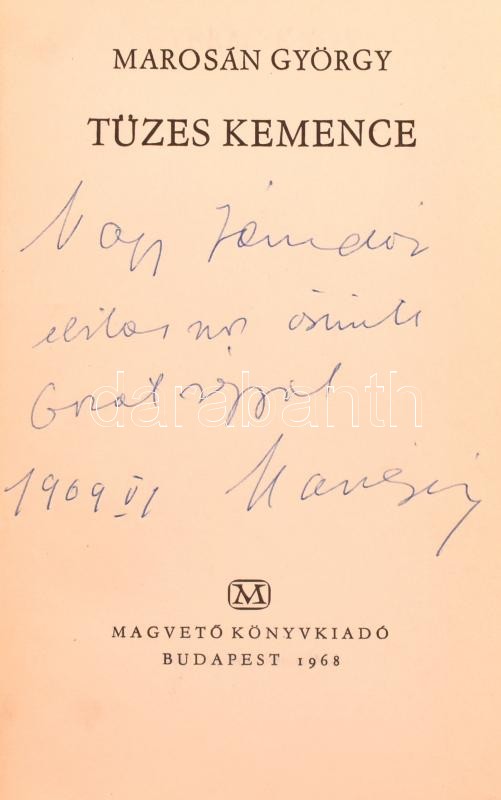 MAROSÁN GYÖRGY
TÜZES KEMENCE
Nagy Sándor
elvtársnak őszinte
barátsággal
darabanth
1969 VI Marosán
M
MAGVETŐ KÖNYVKIADÓ
BUDAPEST 1968